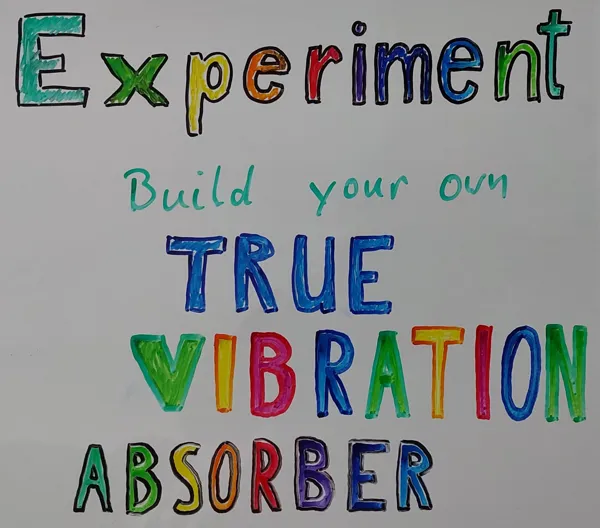 Experiment
Build your own
TRUE
VIBRATION
ABSORBER